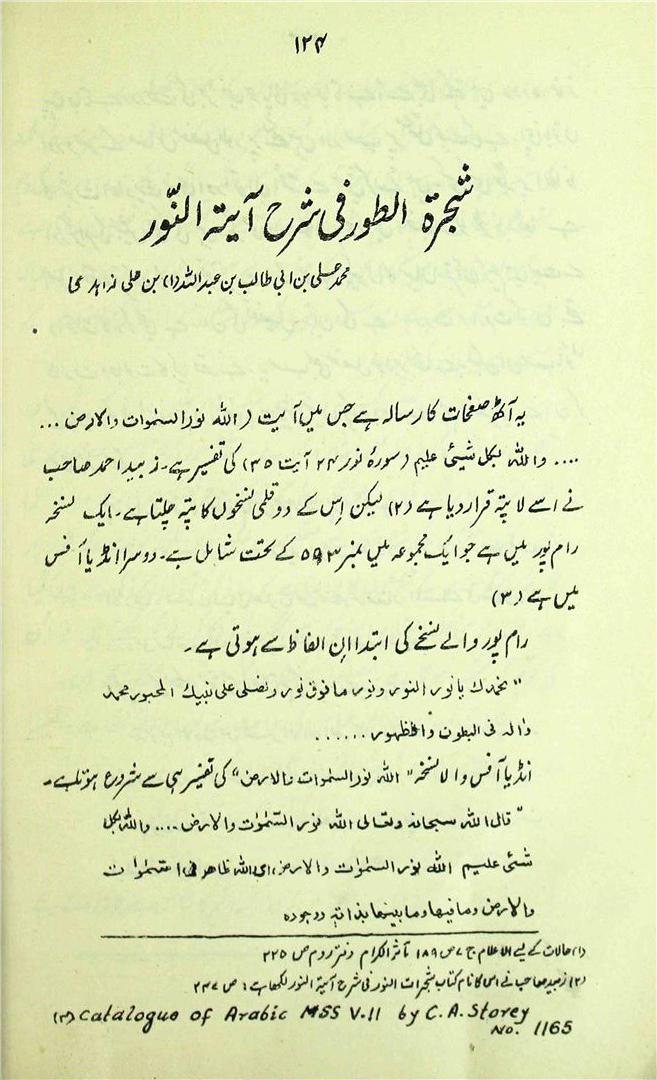 ۱۲۴
شجرۃ الطور فی شرح آیتہ النّور
محمد علی بن ابی طالب بن عبد اللہ (۱) بن علی زاہد
یہ آٹھ صفحات کا رسالہ ہے جس میں آیت ( اللہ نور السمٰوات والارض ...
.... واللہ بکل شیئی علیم ( سورۂ نور ۲۴ آیت ۳۵) کی تفسیر ہے۔ زبید احمد صاحب
نے اسے لا پتہ قرار دیا ہے (۲) لیکن اس کے دو قلمی نسخوں کا پتہ چلتا ہے۔ ایک نسخہ
رام پور میں ہے جو ایک مجموعہ میں نمبر ۵۹۳ کے تحت شامل ہے۔ دوسرا انڈیا آفس
میں ہے (۳)
رام پور والے نسخے کی ابتدا ان الفاظ سے ہوتی ہے۔
"نحمدک یا نور النور ونور ما فوق نور ونصلی علی نبیک المحبور محمد
وآلہ فی البطون والظہور ......
انڈیا آفس والا نسخہ "اللہ نور السموات والارض" کی تفسیر ہی سے شروع ہوتا ہے۔
"قال اللہ سبحانہ وتعالی اللہ نور السّمٰوٰت والارض .... واللہ بکل
شئی علیم اللہ نور السمٰوٰت والارض، ای اللہ ظاہر فی السّمٰوات
والارض وما فیہا وما بینہما بذاتہ ووجودہ
(۱) حالات کے لیے الاعلام ج ۷ ص ۱۸۹ مآثر الکرام دفتر دوم ص ۲۲۵
(۲) زبید صاحب نے اس کا نام کتاب شجرات النور فی شرح آیۃ النور لکھا ہے : ص ۲۴۷
(۳) Catalogue of Arabic MSS V.II by C.A. Storey
No. 1165